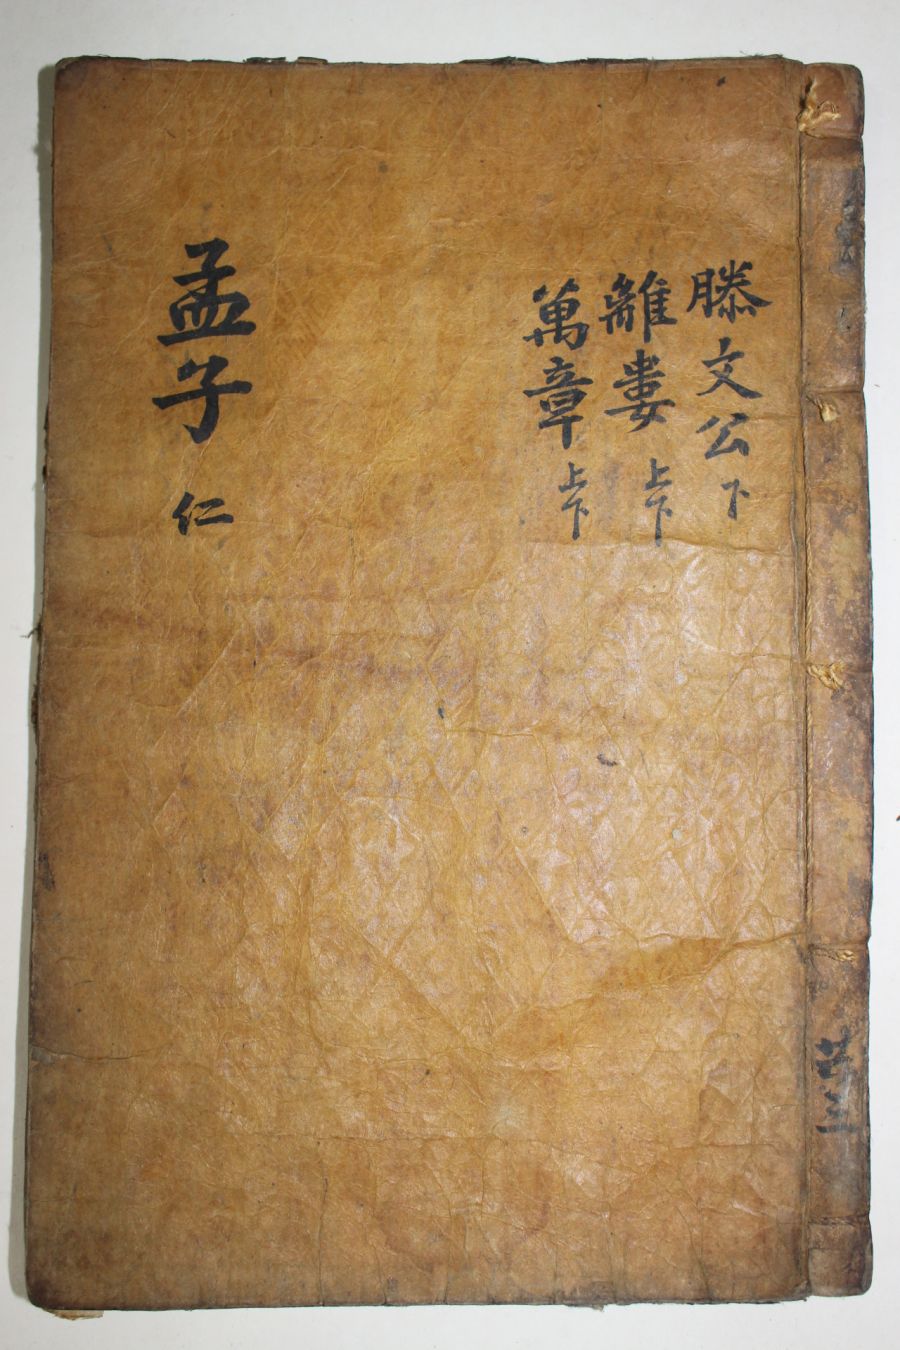 滕文公下
離婁上下
萬章上下
孟子 仁
共三